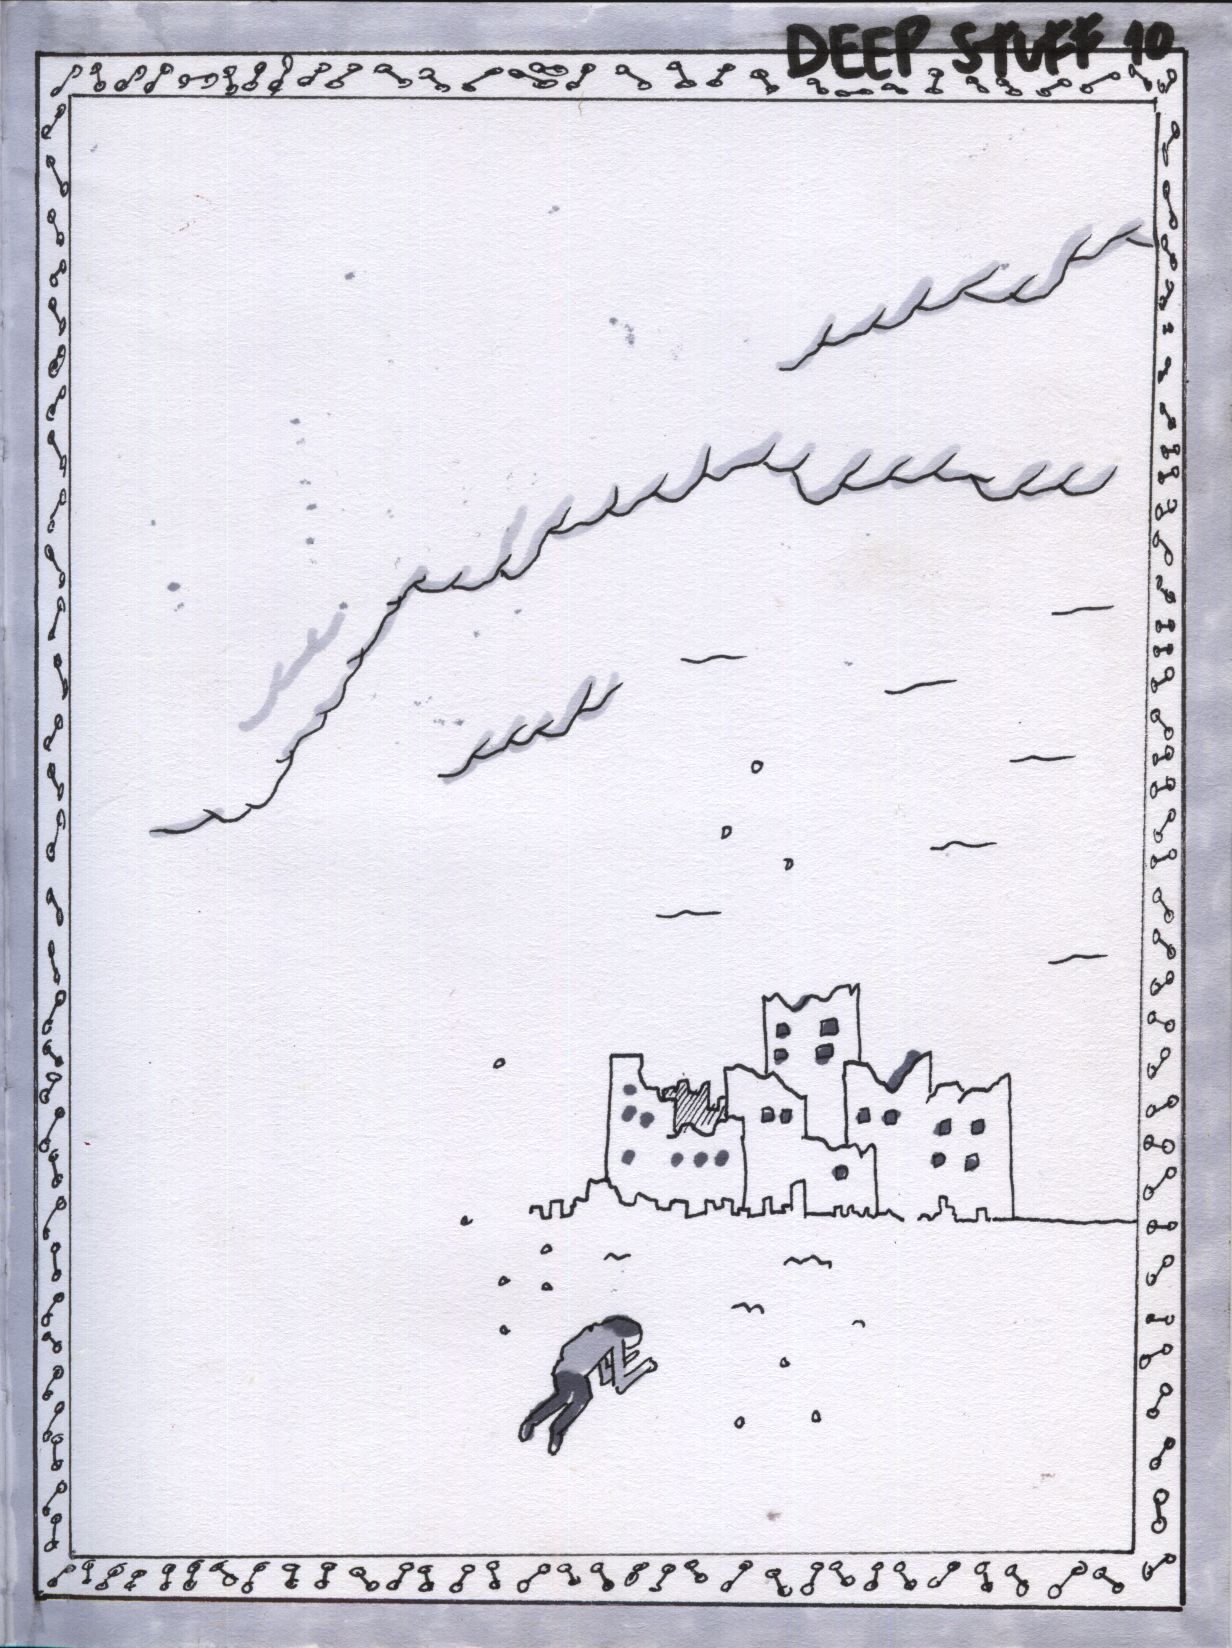 DEEP STUFF 10